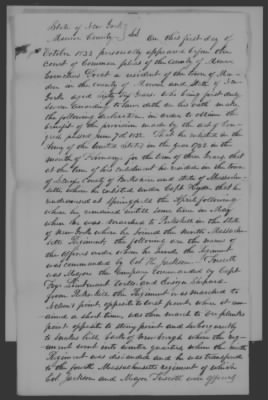 State of New York
Monroe County } SS On this first day of
October 1832 personally appeared before the
court of Common pleas of the County of Monroe
a resident of the town of
in the county of Monroe and State of New
York aged Sixty years who being first duly
Sworn according to law doth on his oath make
the following declaration in order to obtain the
benefit of the provision made by the act of Con-
gress passed June 7th 1832. That he enlisted in the
Army of the United States in the year 1782 in the
month of for the term of three years, that
at the time of his enlistment he resided in the town
of County of and State of Massachu-
setts where he enlisted under Capt. that he
rendezvoused at Springfield the April following
where he remained untill some time in May
when he was marched to Peekskill in the State
of New York where he joined the ninth Massachu-
setts Regiment, the following are the names of
the officers under whom he served the Regiment
was commanded by Col. H. Jackson
was Major the Company commanded by Capt.
Lieutenant and Ensign
from Peekskill the Regiment was marched to
point opposite to west point where it rem-
ained a short time, was then march to ver planks
point opposite to stony point and subsequently
to back of newburgh where the reg-
iment went into winter quarters where the ninth
Regiment was disbanded and he was transferred
to the fourth Massachusetts regiment of which
Col. Jackson and Major were officers